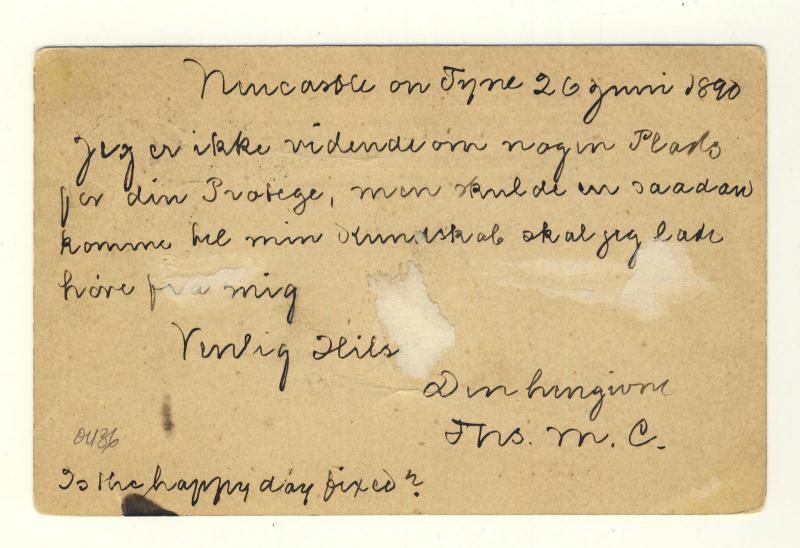 Newcastle on Tyne 26 Juni 1890
Jeg er ikke vidende om nogen Plads
for din Protege, men skulde en saadan
komme til min Kundskab skal jeg lade
høre fra mig
Venlig Hils
Din hengivne
Ths. M. C.
0436
Is the happy day fixed?